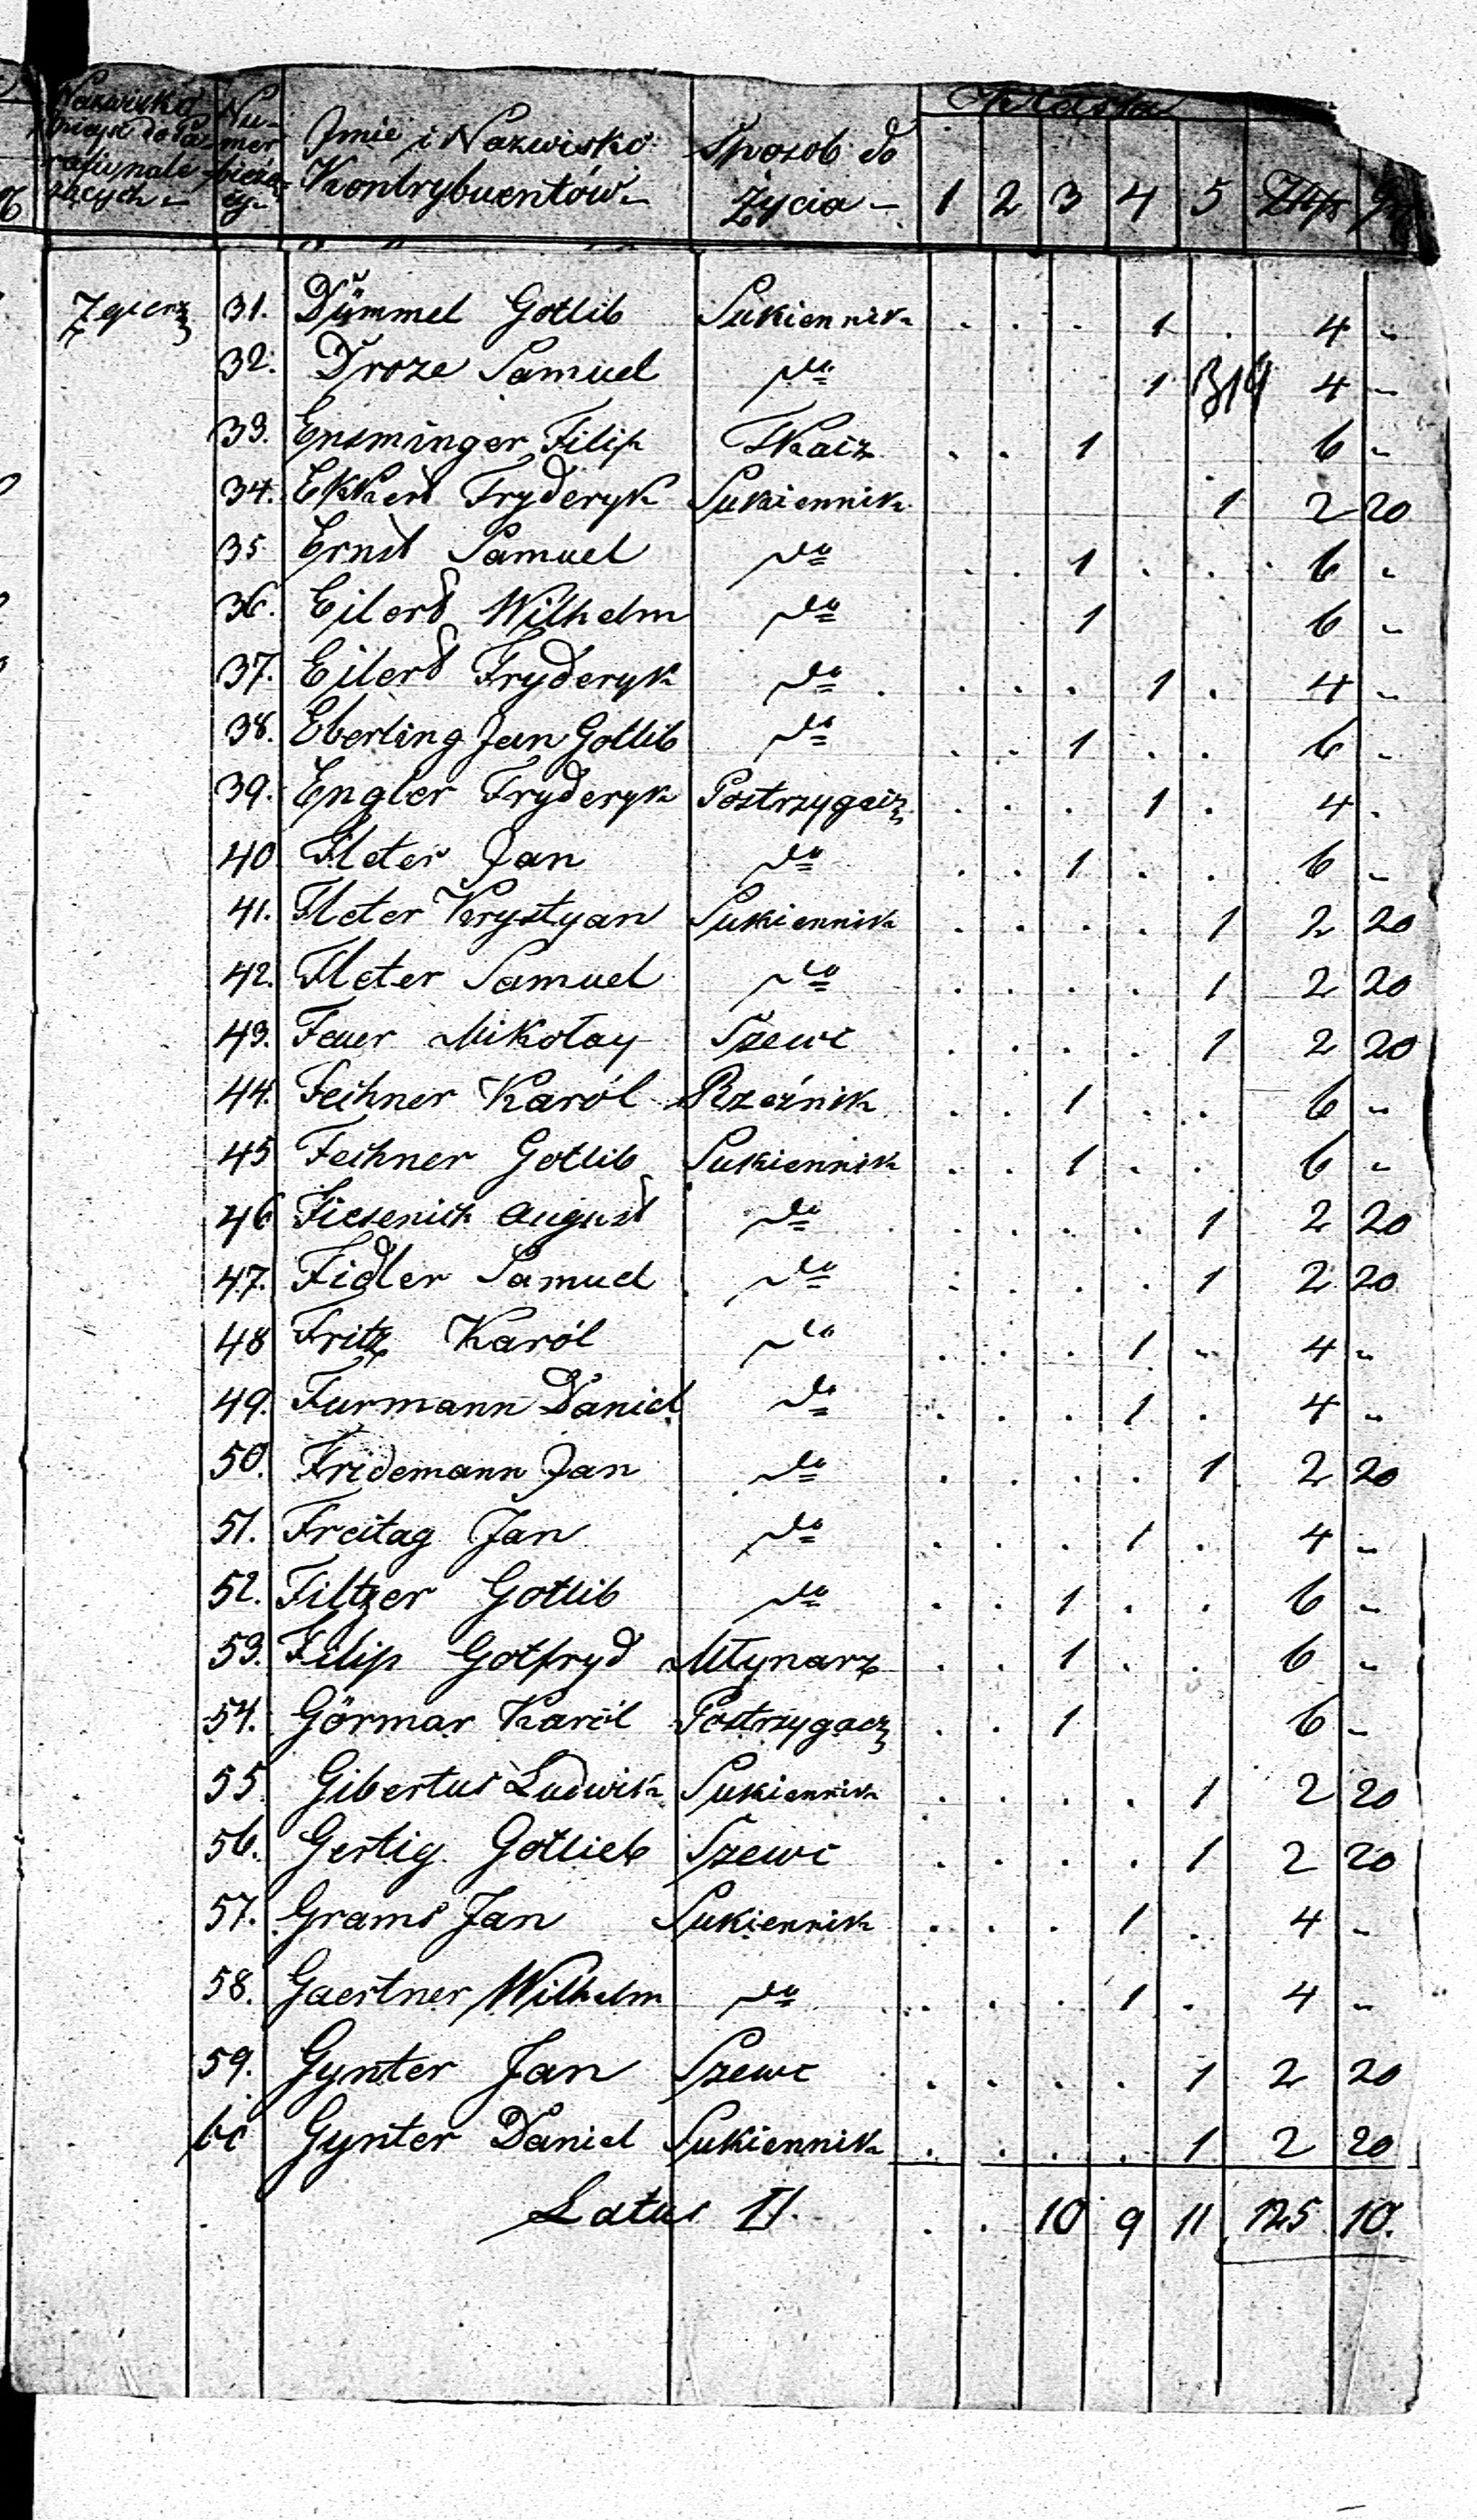 Nazwisko
mieysc do Pa-
rafii nale-
żących -
Nu-
mer
bieżą-
cy -
Imie i Nazwisko
Kontrybuentów -
Sposob do
życia -
Klassa
1 2 3 4 5 Złp gr
Zgierz 31. Dümmel Gotlib Sukiennik . . . 1 . 4 -
32. Droze Samuel do 1 4 -
33. Ensminger Filip Tkacz . . 1 6 -
34. Ekkert Fryderyk Sukiennik 1 2 20
35 Ernst Samuel do . . 1 . . 6 -
36. Eilert Wilhelm do 1 6 -
37. Eilert Fryderyk do . . . 1 . 4 -
38. Eberling Jan Gottlib do . . 1 . . 6 -
39. Engler Fryderyk Postrzygacz . . . 1 . 4 .
40 Fleter Jan do . . 1 . . 6 -
41. Fleter Krystyan Sukiennik . . . . 1 2 20
42. Fleter Samuel do . . . . 1 2 20
43. Feuer Mikołay Szewc . . . . 1 2 20
44. Fechner Karól Rzeźnik . . 1 . . 6 -
45 Fechner Gotlib Sukiennik . . 1 . . 6 -
46 Fiesenich August do . . . . 1 2 20
47. Fidler Samuel do . . . . 1 2 20
48 Fritz Karól do . . . 1 - 4 -
49. Furmann Daniel do . . . 1 . 4 -
50. Fridemann Jan do . . . . 1 2 20
51. Freitag Jan do . . . 1 . 4 -
52. Filtzer Gotlib do . . 1 . . 6 -
53. Filip Gotfryd Młynarz . . 1 . . 6 -
54. Görmar Karól Postrzygacz . . 1 6 -
55 Gibertus Ludwik Sukiennik . . . . 1 2 20
56. Gertig Gotlieb Szewc . . . . 1 2 20
57. Grams Jan Sukiennik . . . 1 . 4 -
58. Gaertner Wilhelm do . . . 1 . 4 -
59. Gynter Jan Szewc . . . . 1 2 20
60 Gynter Daniel Sukiennik . . . . 1 2 20
Latus II. . . 10 9 11 125 10.